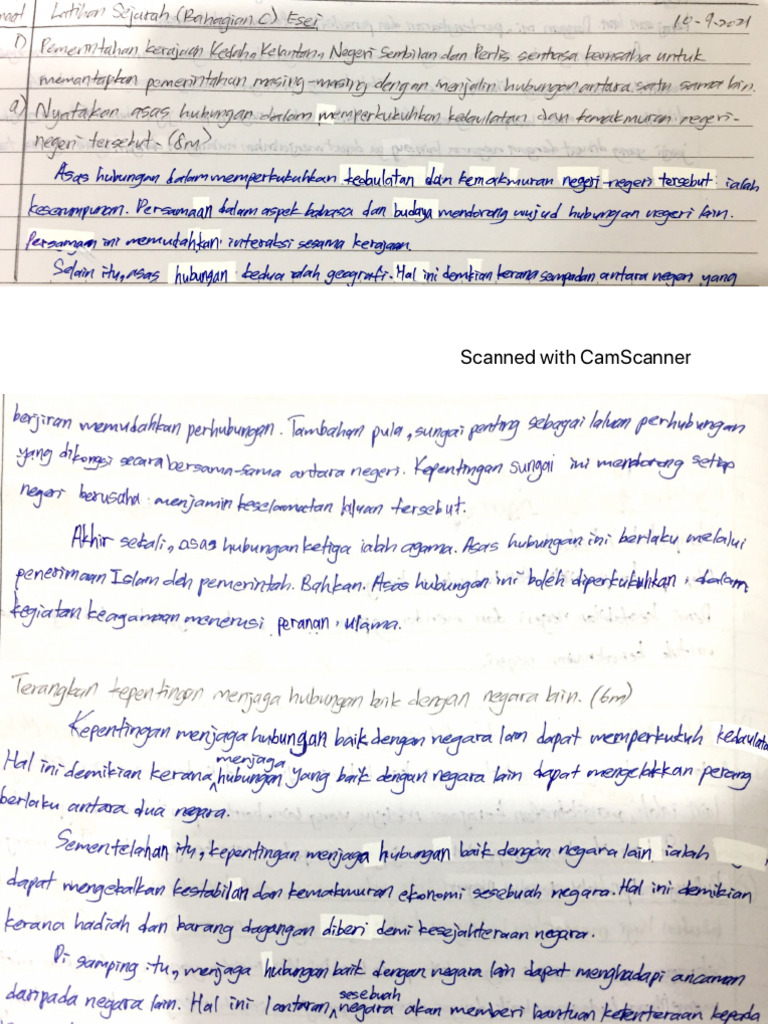 Latihan Sejarah (Bahagian C) Esei 10-9-2021
1) Pemerintahan kerajaan Kedah, Kelantan, Negeri Sembilan dan Perlis sentiasa berusaha untuk
memantapkan pemerintahan masing-masing dengan menjalin hubungan antara satu sama lain.
a) Nyatakan asas hubungan dalam memperkukuhkan kedaulatan dan kemakmuran negeri-
negeri tersebut. (8m)
Asas hubungan dalam memperkukuhkan keabulatan dan kemakmuran negeri-negeri tersebut ialah
keserumpunan. Persamaan dalam aspek bahasa dan budaya mendorong wujud hubungan negeri lain.
Persamaan ini memudahkan interaksi sesama kerajaan.
Selain itu, asas hubungan kedua ialah geografi. Hal ini demikian kerana sempadan antara negeri yang
Scanned with CamScanner
berjiran memudahkan perhubungan. Tambahan pula, sungai penting sebagai laluan perhubungan
yang dikongsi secara bersama-sama antara negeri. Kepentingan sungai ini mendorong setiap
negeri berusaha menjamin keselamatan laluan tersebut.
Akhir sekali, asas hubungan ketiga ialah agama. Asas hubungan ini berlaku melalui
penerimaan Islam oleh pemerintah. Bahkan. Asas hubungan ini boleh diperkukuhkan dalam
kegiatan keagamaan menerusi peranan ulama.
Terangkan kepentingan menjaga hubungan baik dengan negara lain. (6m)
Kepentingan menjaga hubungan baik dengan negara lain dapat memperkukuh kedaulata
Hal ini demikian kerana menjaga hubungan yang baik dengan negara lain dapat mengelakkan perang
berlaku antara dua negara.
Sementelahan itu, kepentingan menjaga hubungan baik dengan negara lain ialah
dapat mengekalkan kestabilan dan kemakmuran ekonomi sesebuah negara. Hal ini demikian
kerana hadiah dan barang dagangan diberi demi kesejahteraan negara.
Di samping itu, menjaga hubungan baik dengan negara lain dapat menghadapi ancaman
daripada negara lain. Hal ini lantaran sesebuah negara akan memberi bantuan ketenteraan kepada